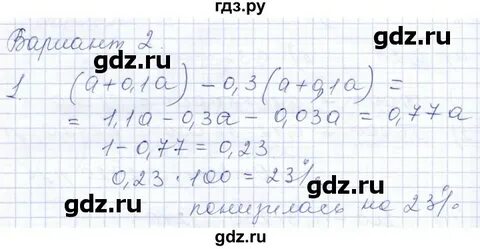 гдз.ру
Вариант 2.
gdz.ru gdz.ru
1. (a+0,1a) - 0,3(a+0,1a) =
= 1,1a - 0,3a - 0,03a = 0,77a
gdz.ru gdz.ru
1 - 0,77 = 0,23
0,23 · 100 = 23%
gdz.ru gdz.ru
понизилась на 23%
gdz.ru